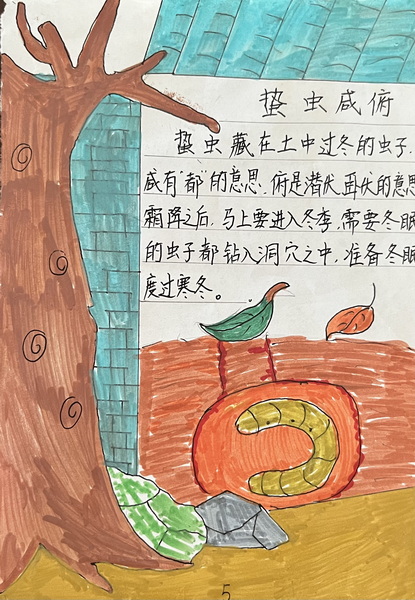 蛰虫咸俯
蛰虫藏在土中过冬的虫子.
咸有"都"的意思.俯是潜伏、卧伏的意思
霜降之后,马上要进入冬季,需要冬眠
的虫子都钻入洞穴之中,准备冬眠
度过寒冬。
5